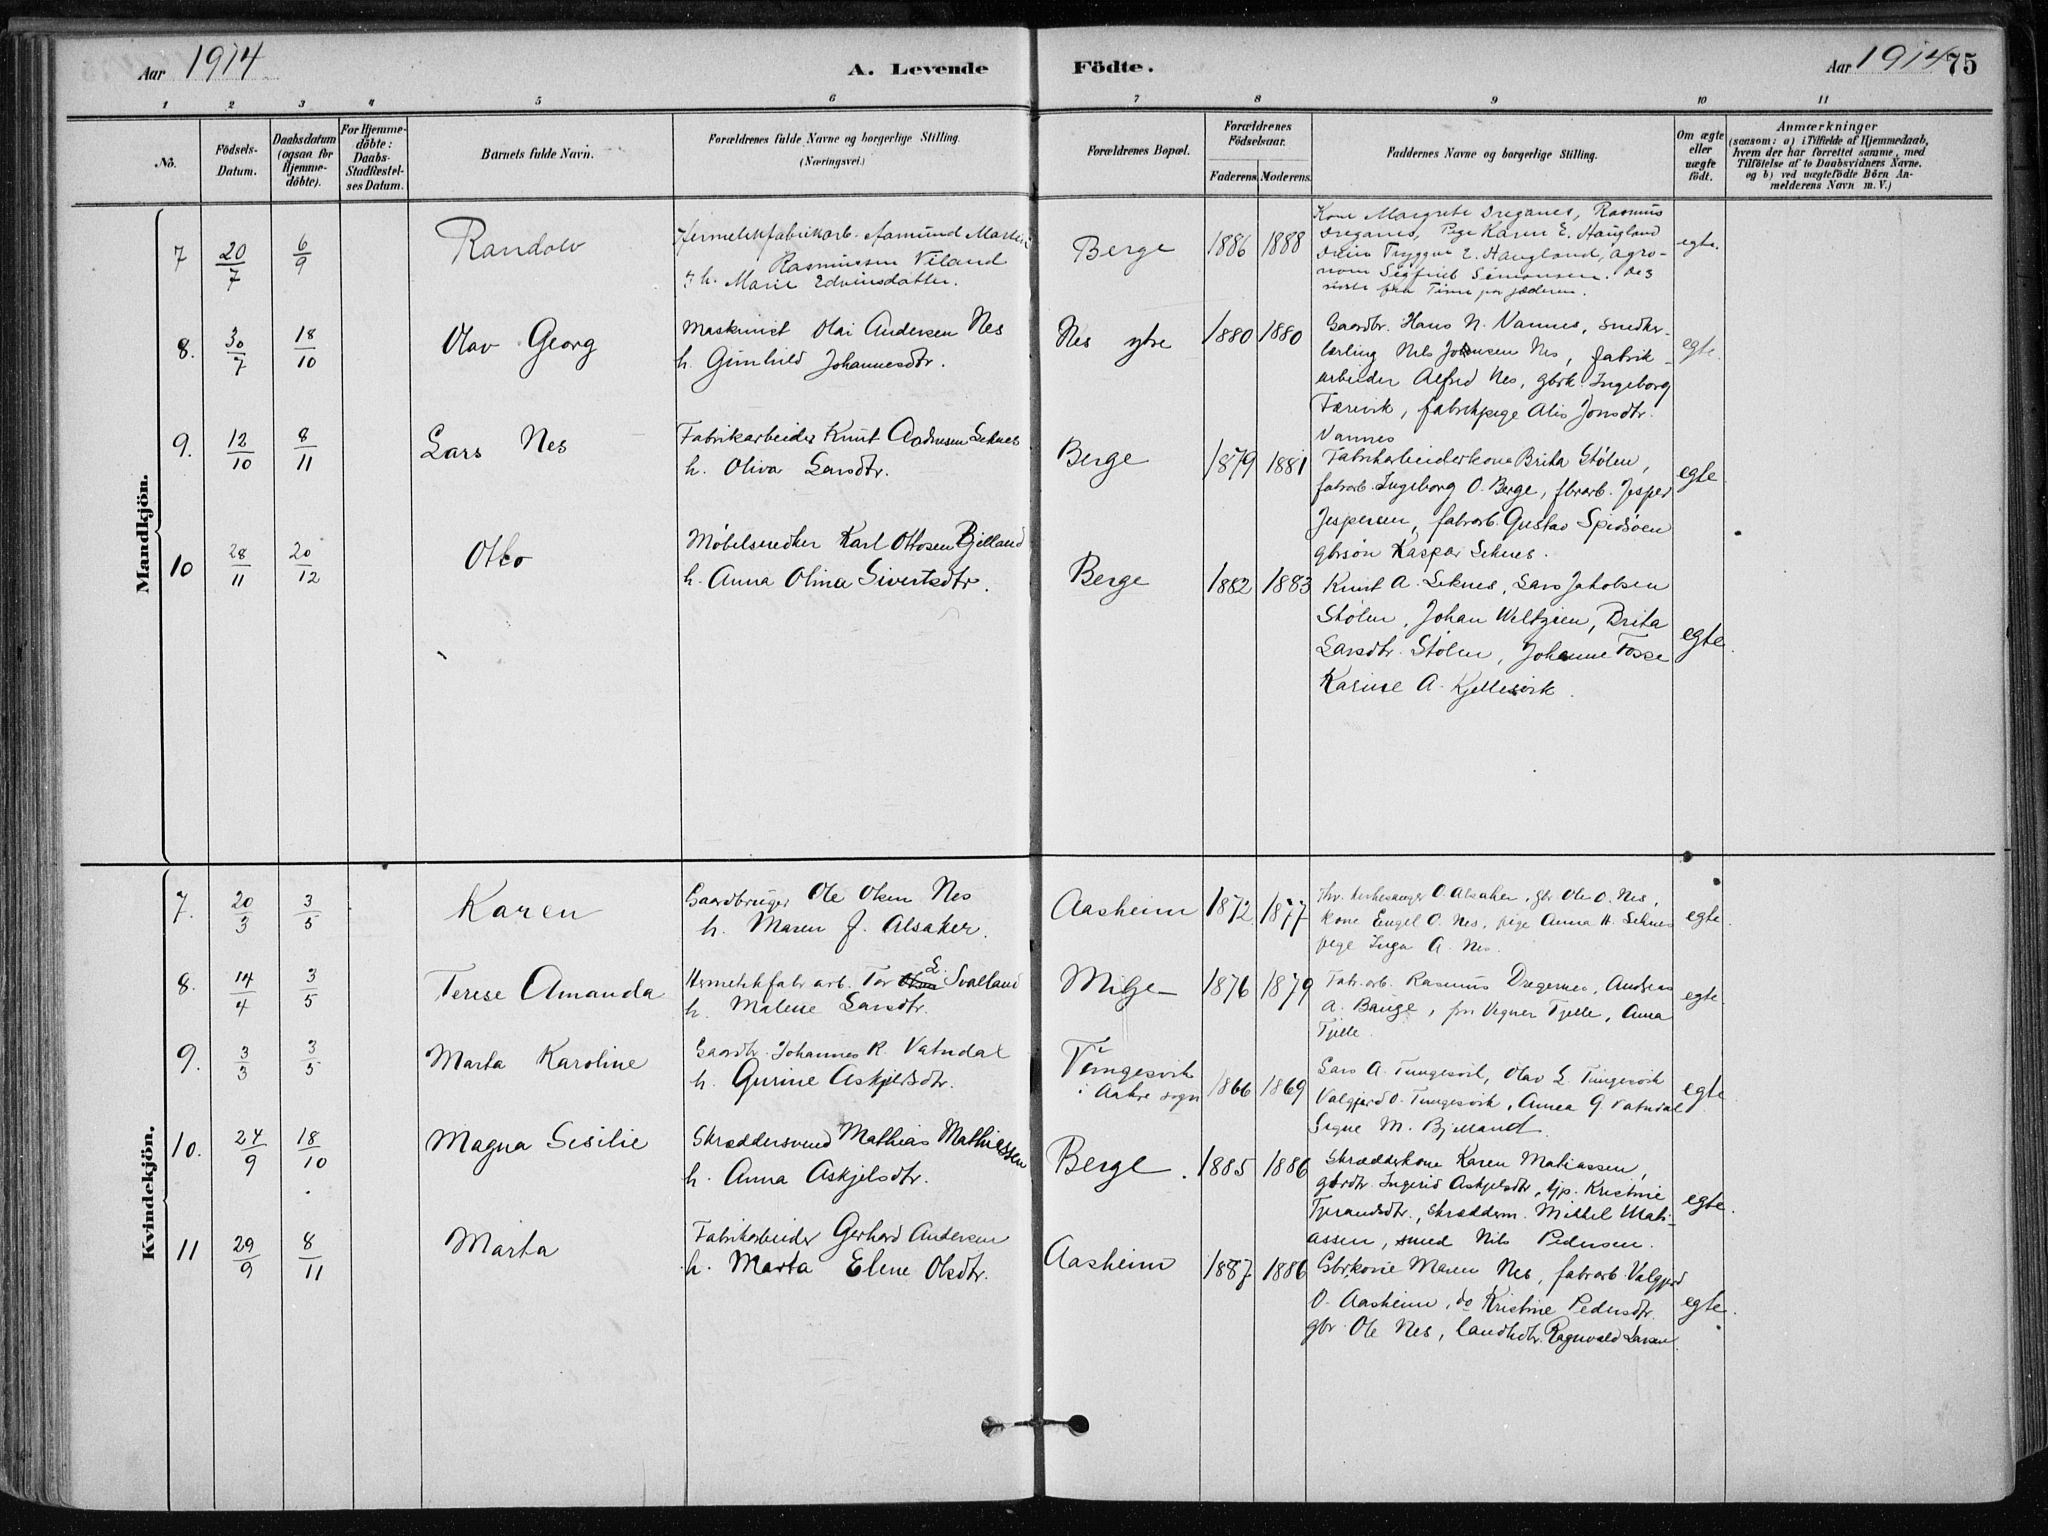 Aar 1914
A. Levende
Födte.
Aar 1914 75
1 2 3 4 5 6 7 8 9 10 11
No.
Födsels-
Datum.
Daabsdatum
(ogsaa for
Hjemme-
döbte).
For Hjemme-
döbte:
Daabs-
Stadfæstel-
ses Datum.
Barnets fulde Navn.
Forældrenes fulde Navne og borgerlige Stilling.
(Næringsvei.)
Forældrenes Bopæl.
Forældrenes
Födselsaar.
Faderens. Moderens.
Faddernes Navne og borgerlige Stilling.
Om ægte
eller
uægte
födt.
Anmærkninger
(saasom: a) i Tilfælde af Hjemmedaab,
hvem der har forrettet samme, med
Tilföielse af to Daabsvidners Navne.
og b) ved uægtefödte Börn An-
melderens Navn m. V.)
Mandkjön.
7 20/7 6/9 Randolv
Hermetikfabrikarb. Aamund Martin
Rasmussen Veland
h. Marie Edvinsdatter.
Berge 1886 1888
Kone Margrete Dreganes, Rasmus
Dreganes, Pige Karen E. Haugland
Tryggve E. Haugland, agro-
nom Sigfred Simonsen. Des
sidste fra Time paa Jæderen.
egte.
8. 30/7 18/10 Olav Georg
Maskinist Olai Andersen Nes
h. Gunhild Johannesdtr.
Nes ytre 1880 1880
Gaardbr. Hans N. Vannes, snedker-
lærling Nils Johnsen Nes, fabrik-
arbeider Alfred Nes, gbrk. Ingeborg
Tærevik, fabrikpige Alis Jonsdtr.
Vannes
egte.
9. 12/10 8/11 Lars Nes
Fabrikarbeider Knut Andersen Seknes
h. Oliva Larsdtr.
Berge 1879 1881
Fabrikarbeiderkone Brita Stølen,
fabrarb. Ingeborg O. Berge, fbrarb. Jesper
Jespersen, fabrarb. Gustav Spidsøen
gbrsøn Kaspar Seknes.
egte
10 28/11 20/12 Otto
Møbelsnedker Karl Ottosen Bjelland
h. Anna Olina Sivertsdtr.
Berge 1882 1883
Knut A. Seknes, Lars Jakobsen
Stølen, Johan Weltzien, Brita
Larsdtr. Stølen, Johanne Fosse
Karine A. Kjellesvik.
egte.
Kvindekjön.
7. 20/3 3/5 Karen
Gaardbruger Ole Olsen Nes
h. Maren J. Alsaker.
Aasheim 1872 1877
kirkesanger O. Alsaker, gbr Ole O. Nes,
kone Engel O. Nes, pige Anna H. Seknes
pige Inga A. Nes.
egte.
8. 14/4 3/5 Terese Amanda
Hermetikfabr arb. Tor L. Svalland
h. Malene Larsdtr.
Mæge 1876 1879
Fabr. arb. Rasmus Dregernes, Andreas
A. Bauge, fru Vegner Tjelle, Anna
Tjelle.
egte.
9. 3/3 3/5 Marta Karoline
Gaardbr. Johannes R. Vatndal
h. Gurine Askjelsdtr.
Tungesvik
i Aakre sogn 1866 1869
Lars A. Tungesvik, Olav L. Tungesvik
Valgjerd O. Tungesvik, Anna G. Vatndal
Signe M. Bjelland.
egte.
10. 24/9 18/10 Magna Sesilie
Skræddersvend Mathias Mathiessen
h. Anna Askjelsdtr.
Berge. 1885 1886
Skrædderkone Karen Matiassen,
gbrdtr. Ingerid Askjelsdtr, tjp. Kristine
Tjerandsdtr., skrædderm. Mikkel Mati-
assen, smed Nils Pedersen.
egte.
11 29/9 8/11 Marta
Fabrikarbeider Gerhard Andersen
h. Marta Elene Olsdtr.
Aasheim 1887 1886
Gbrkone Maren Nes, fabrarb. Valgjerd
O. Aasheim, do Kristine Pedersdtr.
gbr. Ole Nes, landhdtr. Ragnvald Larsen
egte.